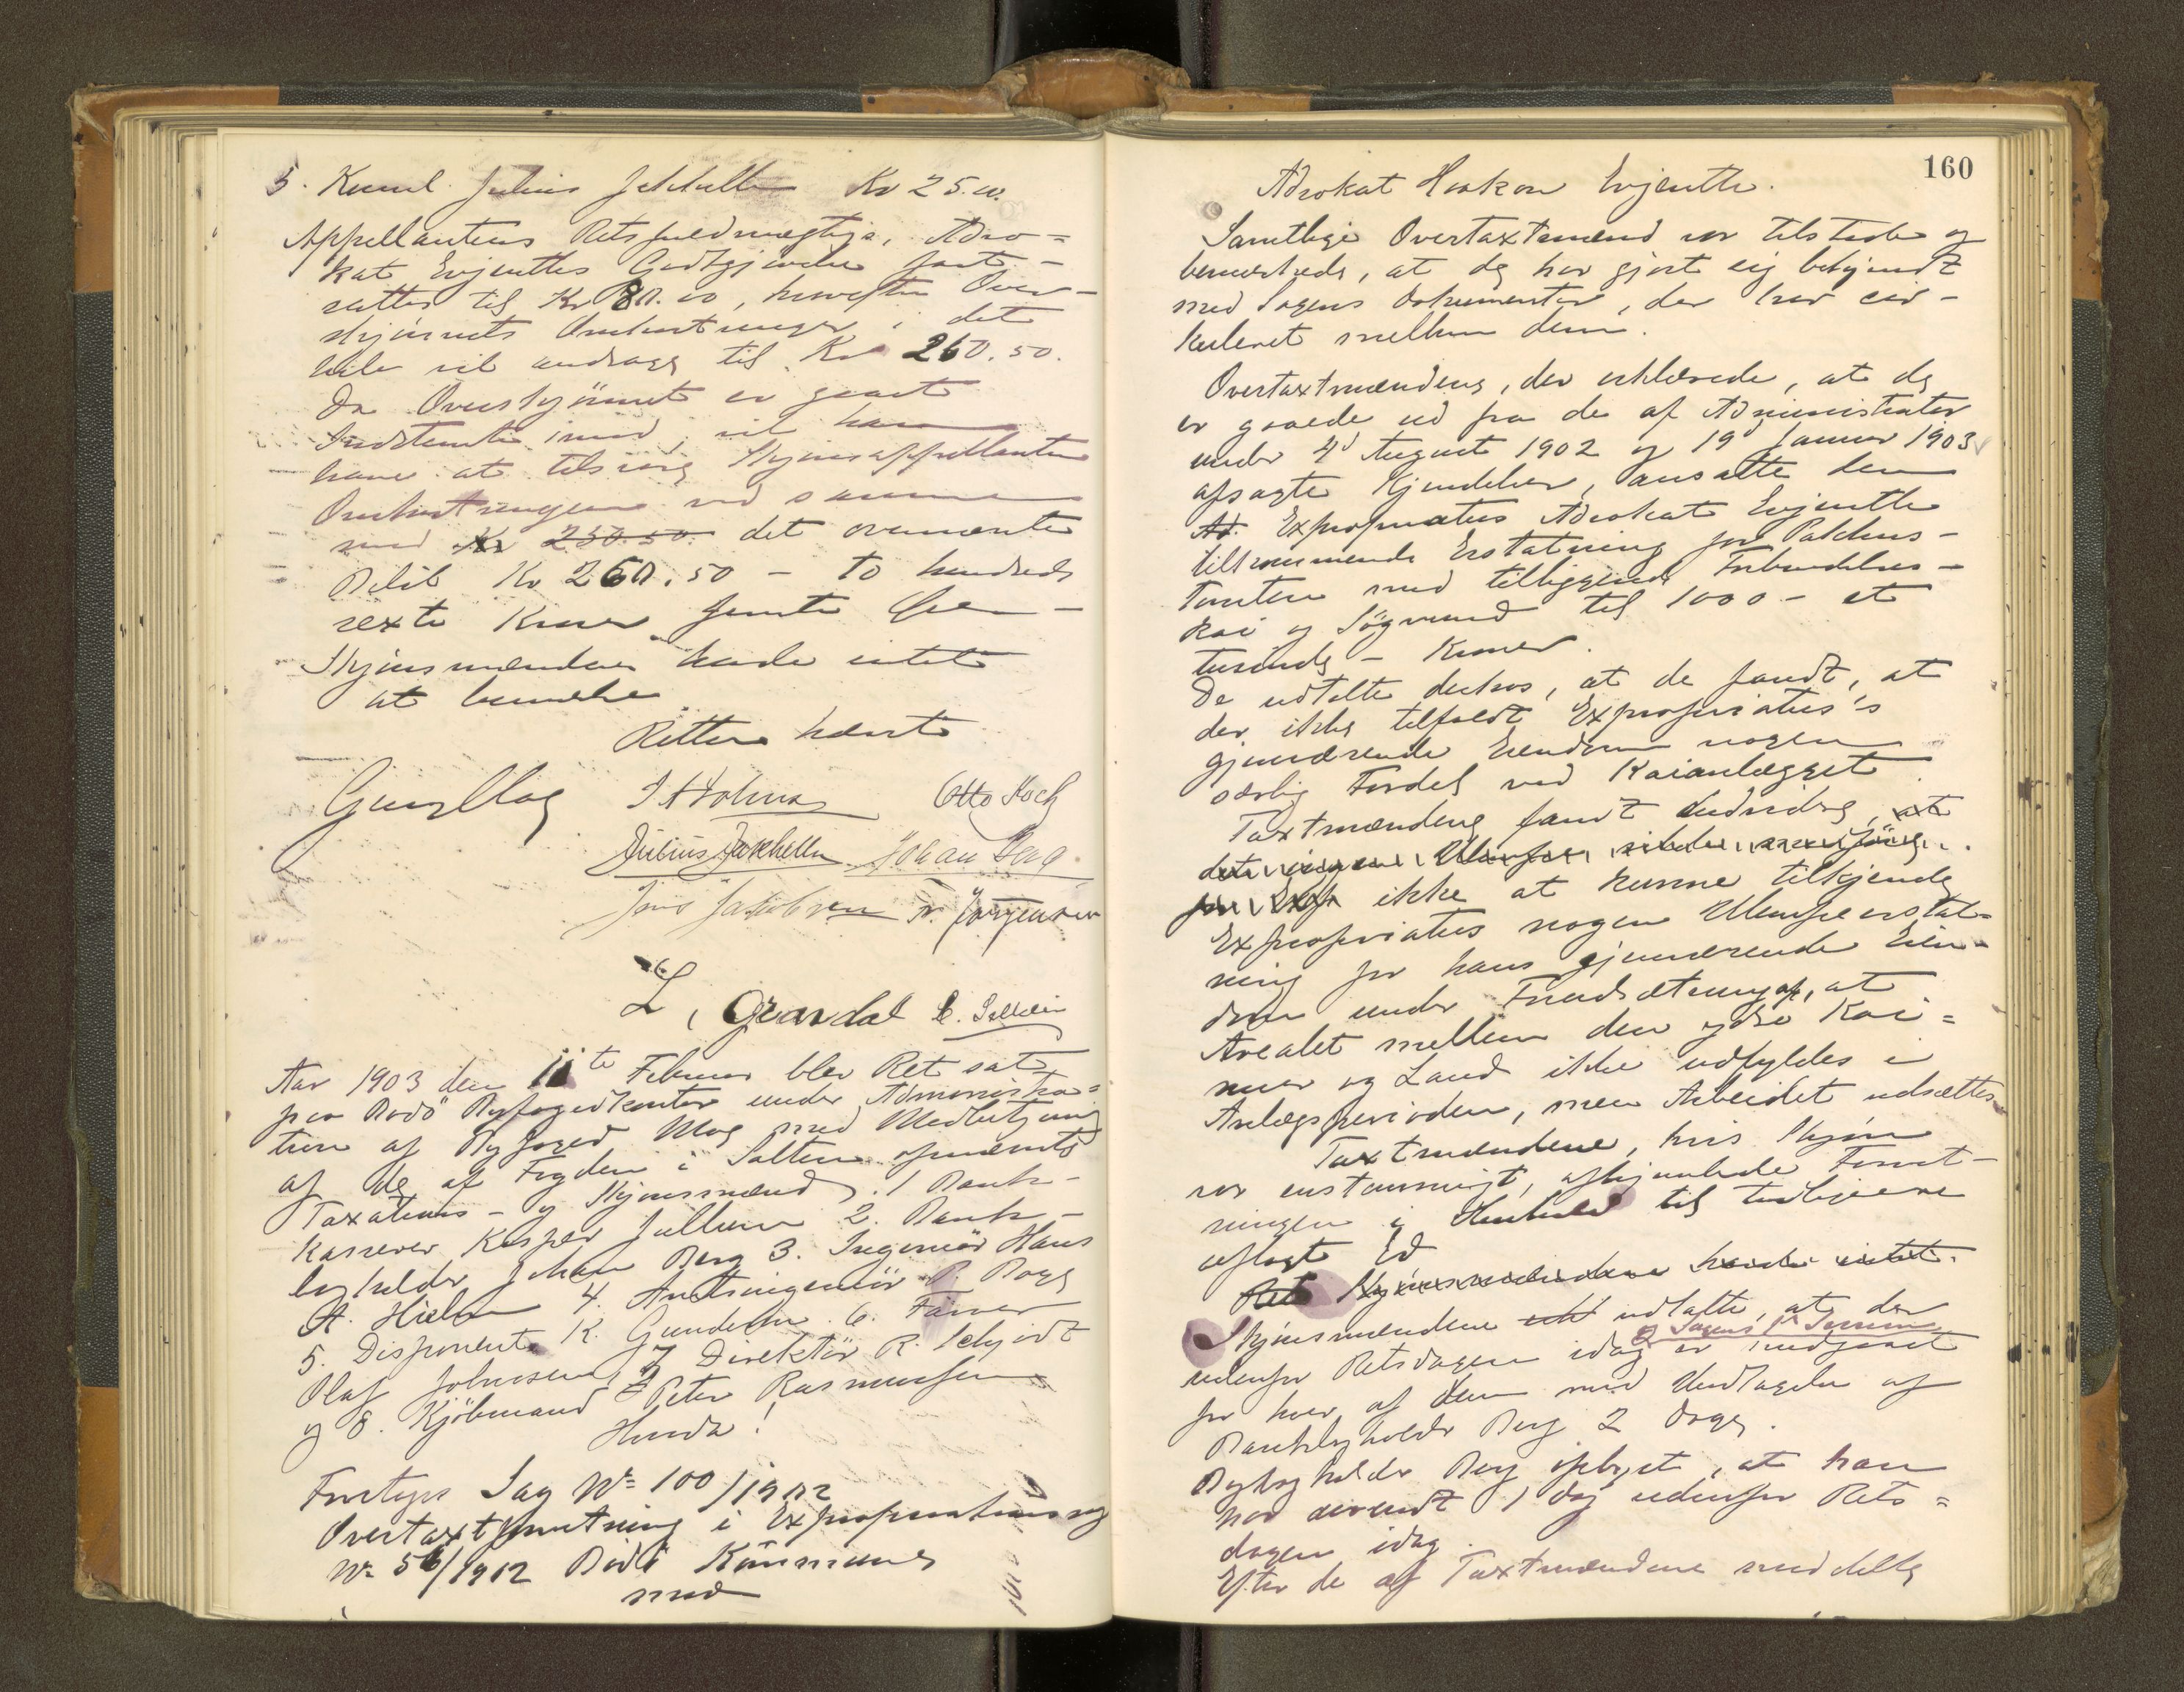 5. Konsul Julius Jakhelln Kr 25.00.
Appellantens Retsfuldmægtige, Advo=
kat Evjenths Godtgjørelse fast-
sattes til Kr 80.00, hvorefter Over-
skjønnets Omkostninger i det
hele vil andrage til Kr 260.50.
Da Overskjønnet er gaaet
Indstevnte imod, vil han
have at tilsvare Skjønsappellanten
Omkostningerne ved samme
med Kr 250.50. det ovennævnte
Beløb Kr 260.50 - to hundrede
sexti Kroner femti Øre -
Skjønsmændene havde intet
at bemærke
Retten hævet
Otto Koch
Julius Jakhelln Johan Berg
Jens Jakobsen N. Jørgensen
L. Grandal
Aar 1903 den 11te Februar blev Ret sat
paa Bodø Byfogedkontor under Administra=
tion af Byfoged Mog med Medbetjening
af de af Fogden i Salten opnævnte
Taxations- og Skjønsmænd: 1 Bank-
kasserer Kasper Jullum 2. Bank-
bogholder Johan Berg 3. Ingeniør Hans
A. Hielm 4. Amtsingeniør B. Boye
5. Disponent K. Gundersen 6. Farver
Olaf Johnsen 7 Direktør R. Schjødt
og 8. Kjøbmand Peter Rasmussen
Hvorda!
Foretoges Sag No 100/1902
Overtaxtforretning i Expropriationssag
No 56/1902 Bodø Kommune
mod
160
Advokat Haakon Evjenth.
Samtlige Overtaxtmænd var tilstede og
bemærkede, at de har gjort sig bekjendt
med Sagens Dokumenter, der har cir-
kuleret mellem dem.
Overtaxtmændene, der erklærede, at de
er gaaede ud fra de af Administrator
under 4de August 1902 og 19de Januar 1903
afsagte Kjendelser, ansatte den
Ad. Expropriatus Advokat Evjenth
tilkommende Erstatning for Pakhus-
tomten med tilliggende Forbindelses-
kai og Søgrund til 1000 - et
tusinde - Kroner.
De udtalte derhos, at de fandt, at
der ikke tilfaldt Expropriatus's
gjenværende Eiendom nogen
særlig Fordel ved Kaianlægget.
Taxtmændene fandt endvidere, at
det ingen Ulempe vilde medføre
for Exp ikke at kunne tilkjende
Expropriatus nogen Ulempeerstat=
ning for hans gjenværende Eien-
dom under Forudsætning af, at
Arealet mellem den ydre Kai=
mur og Land ikke udfyldes i
Anlægsperioden, men Arbeidet udsættes
Taxtmændene, hvis Skjøn
var enstemmigt, afhjemlede Forret-
ningen i Henhold til tidligere
aflagt Ed
Ret Skjønsmændene havde intet
Skjønsmændene udtalte, at der
og Sagens 1ste Session
udenfor Retsdagen idag er medgaaet
for hver af dem med Undtagelse af
Bankbogholder Berg 2 Dage.
Bogholder Berg oplyste, at han
har anvendt 1 Dag udenfor Rets=
dagen idag.
Efter de af Taxtmændene meddelte